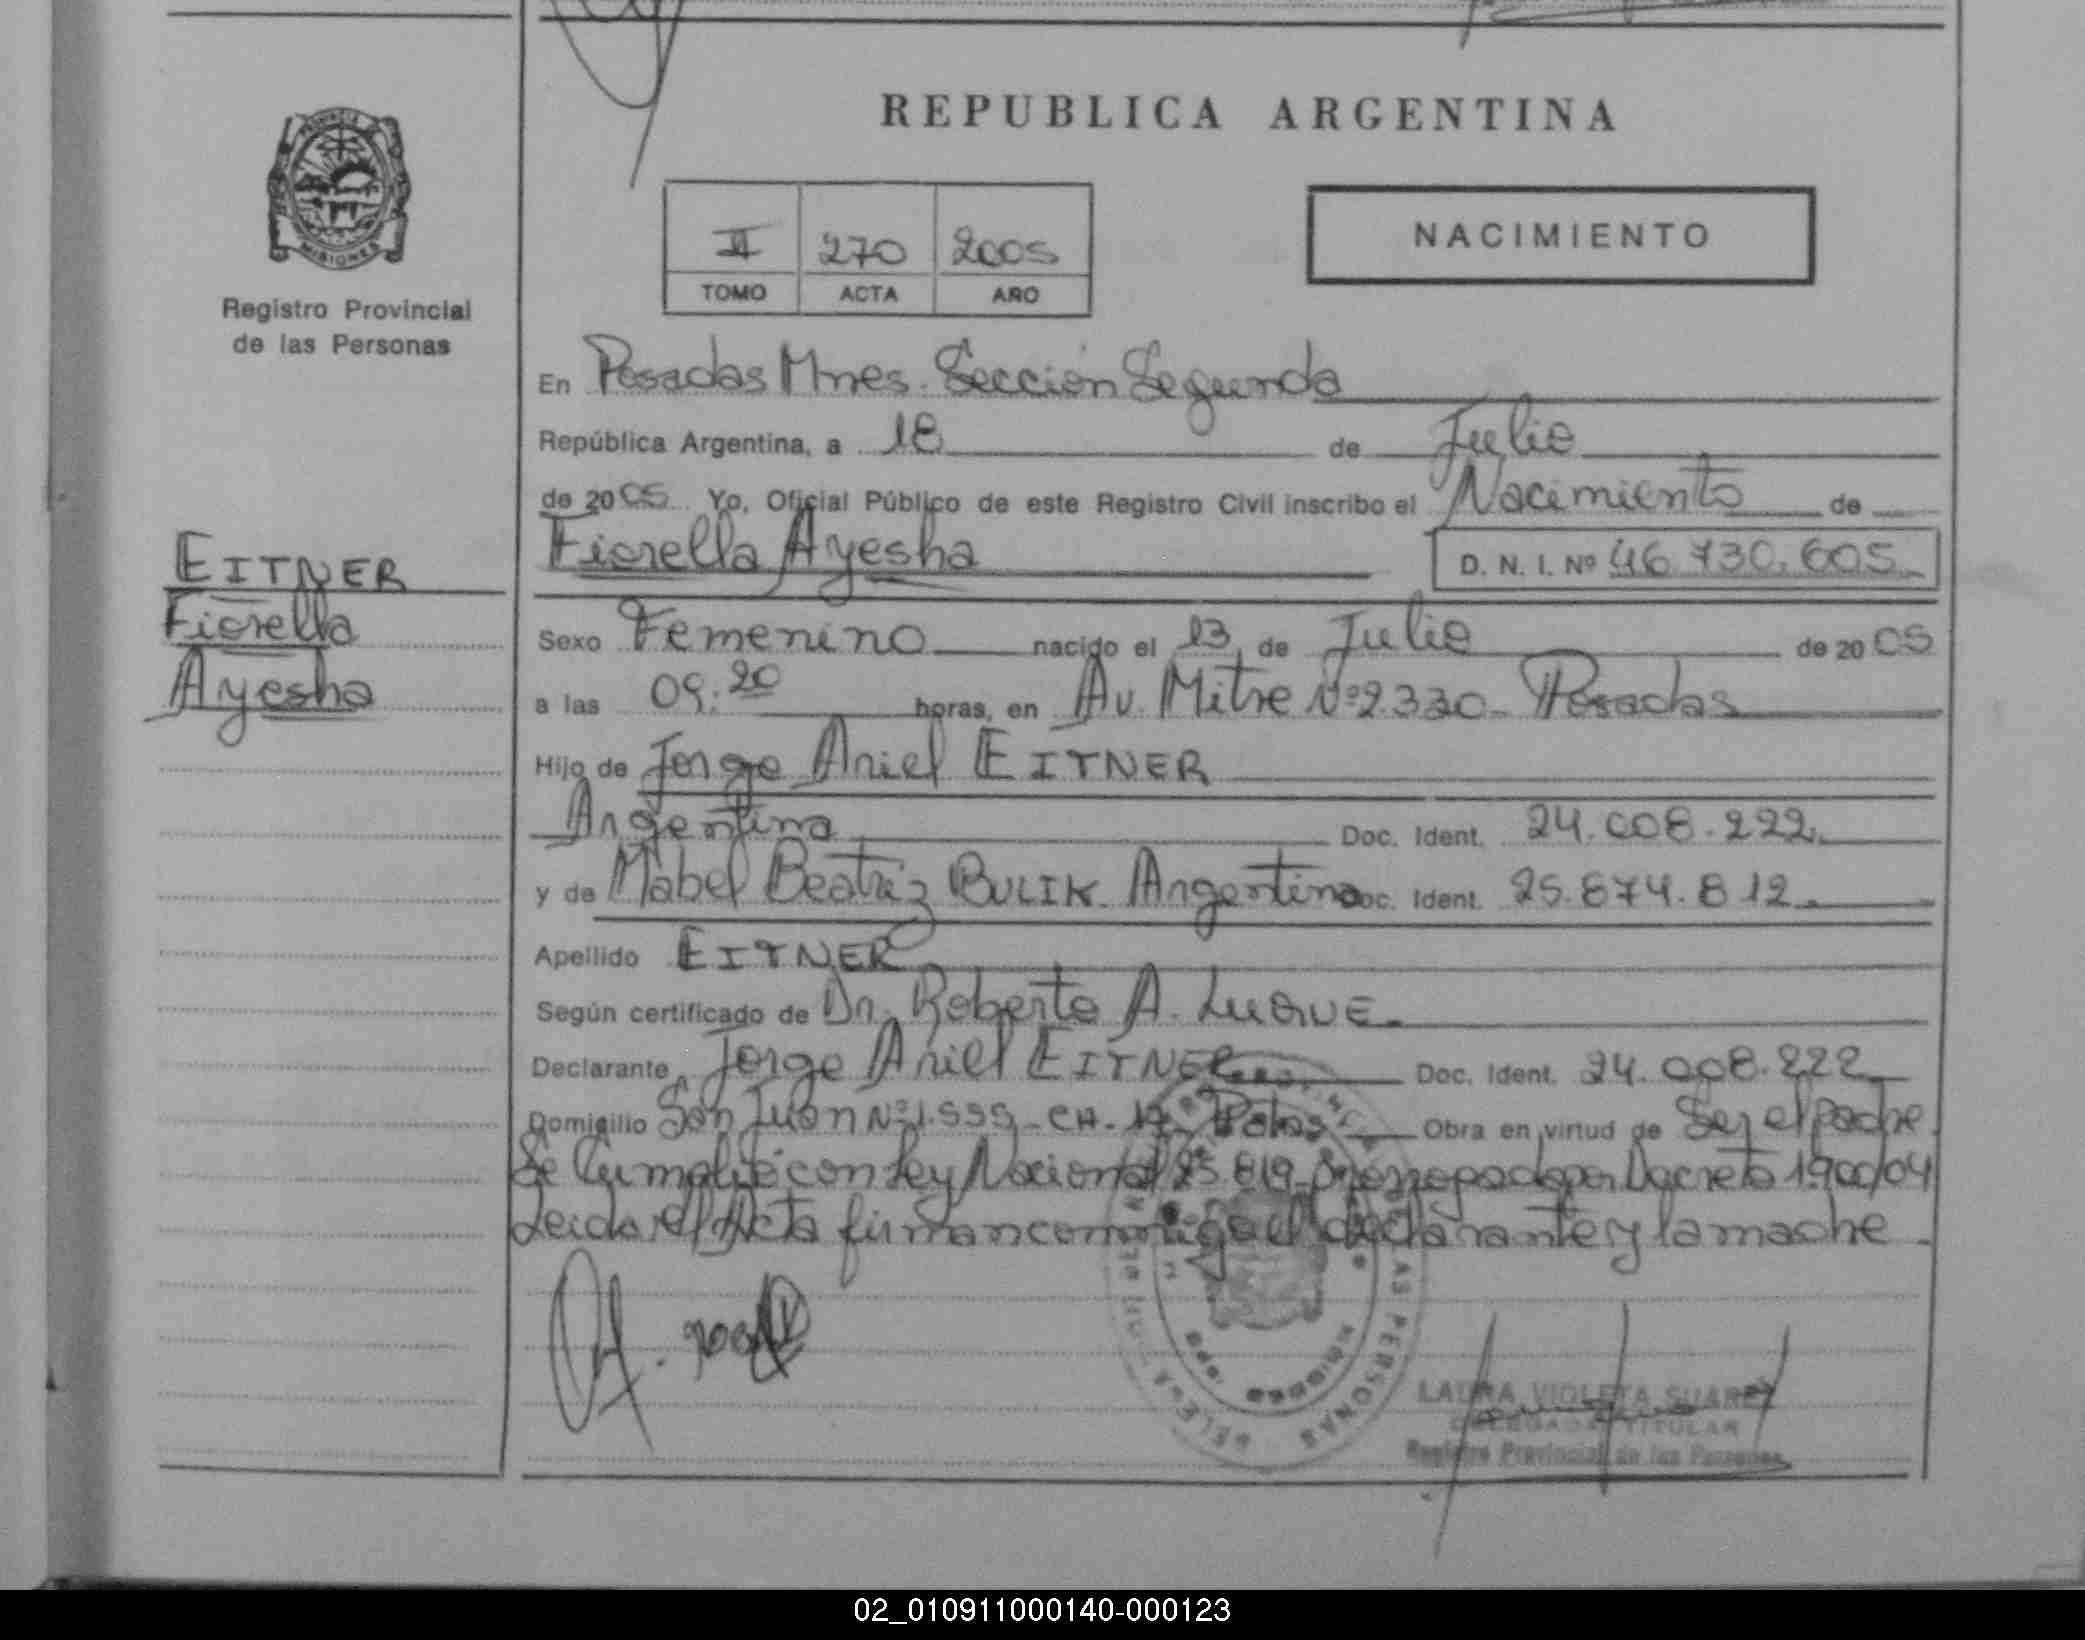 REPUBLICA ARGENTINA
PROVINCIA
MISIONES
Registro Provincial
de las Personas
II 270 2005
TOMO ACTA AÑO
NACIMIENTO
En Posadas Mnes. Sección Segunda
República Argentina, a 18 de Julio
de 2005 Yo, Oficial Público de este Registro Civil inscribo el Nacimiento de
Fiorella Ayesha D. N. I. Nº 46.730.605
EITNER
Fiorella
Ayesha
Sexo Femenino nacido el 13 de Julio de 2005
a las 09:20 horas, en Av. Mitre Nº 2.330 - Posadas
Hijo de Jorge Ariel EITNER
Argentina Doc. Ident. 24.008.222
y de Mabel Beatriz BULIK Argentina Doc. Ident. 25.874.812
Apellido EITNER
Según certificado de Dr. Roberto A. LUQUE
Declarante Jorge Ariel EITNER Doc. Ident. 24.008.222
Domicilio San Juan Nº 1.555 - CH. Pdas Obra en virtud de Ser el padre
Se Cumplió con Ley Nacional 25.819 prorrogado por Decreto 1.900/04
Leida el Acta firman conmigo el declarante y la madre
LAURA VIOLETA SUAREZ
DELEGADA TITULAR
Registro Provincial de las Personas
02_010911000140-000123